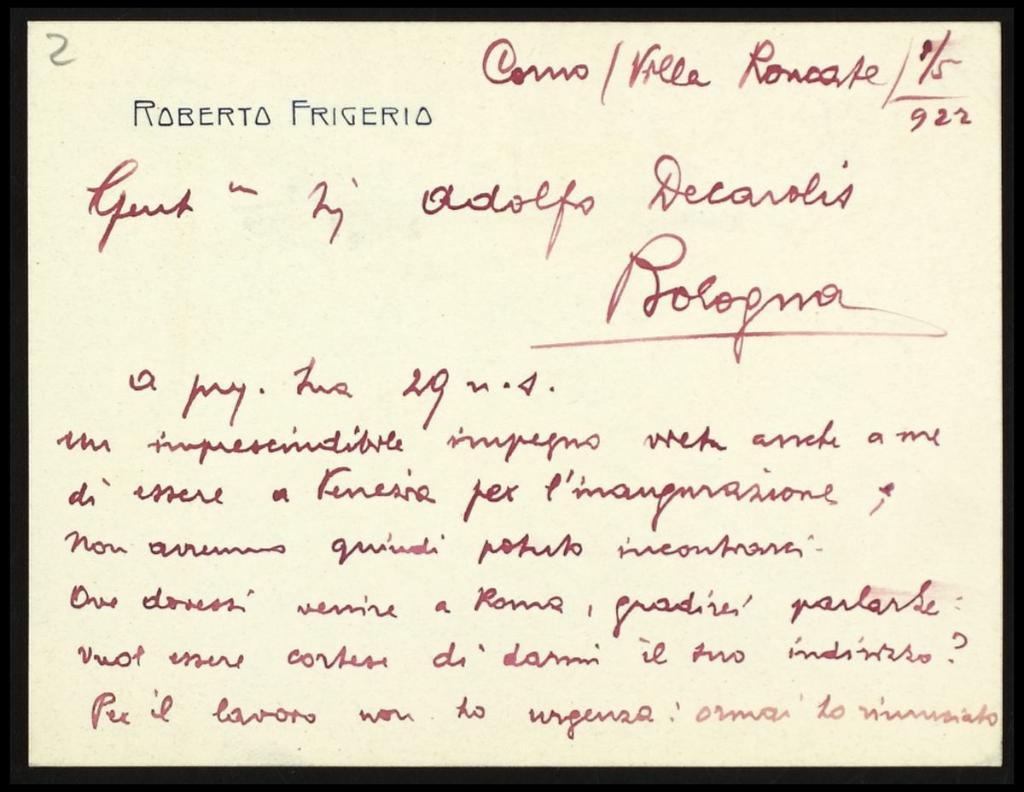 2
Como / Villa Roncate / 1/5
922
ROBERTO FRIGERIO
Gent m Sij Adolfo Decarolis
Bologna
a preg. sua 29 u.s.
un imprescindibile impegno vieta anche a me
di essere a Venezia per l'inaugurazione ;
Non avremmo quindi potuto incontrarci.
Ove dovessi venire a Roma, gradirei parlarLe:
vuol essere cortese di darmi il suo indirizzo?
Per il lavoro non ho urgenza: ormai ho rinunciato